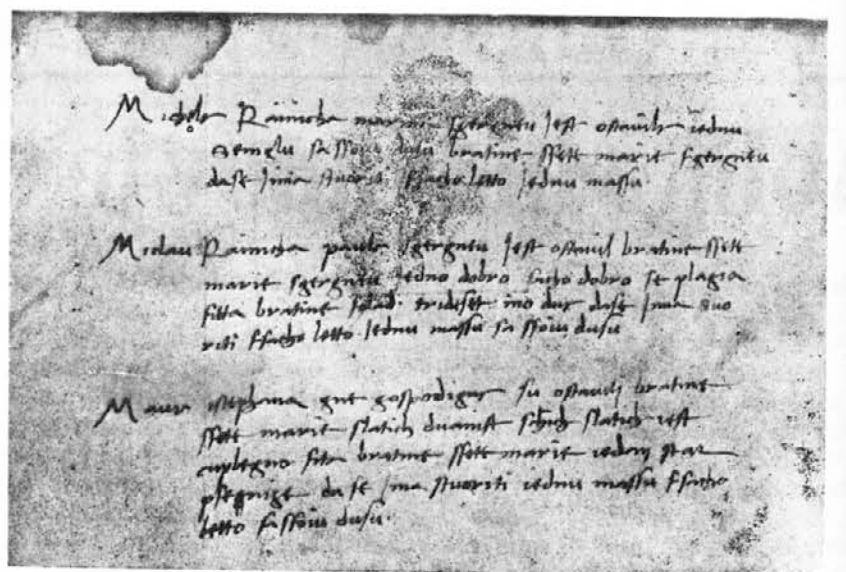 Michele Rainicha marini sgergneu Jest ostauile iednu
Semglu sa ssoiu dusu bratine ssete marie sgergneu
dase Jima stuorit ssacho letto Jednu massu.
Miclau Rainicha paula sgergneu Jest ostauil bratine ssete
marie sgergneu Jedno dobro sucho dobro se plagia
fitta bratine trideset ino due dase Jma stuo
riti ssacho letto Jednu massu sa ssoiu dusu
Maura istephana gne gospodigne su ostauili bratine
ssete marie slatich duanist slatich iest
cuplegno sito bratine ssete marie iedan star
psegnige da se Jma stuoriti iednu massu ssacho
letto sa ssoiu dusu.